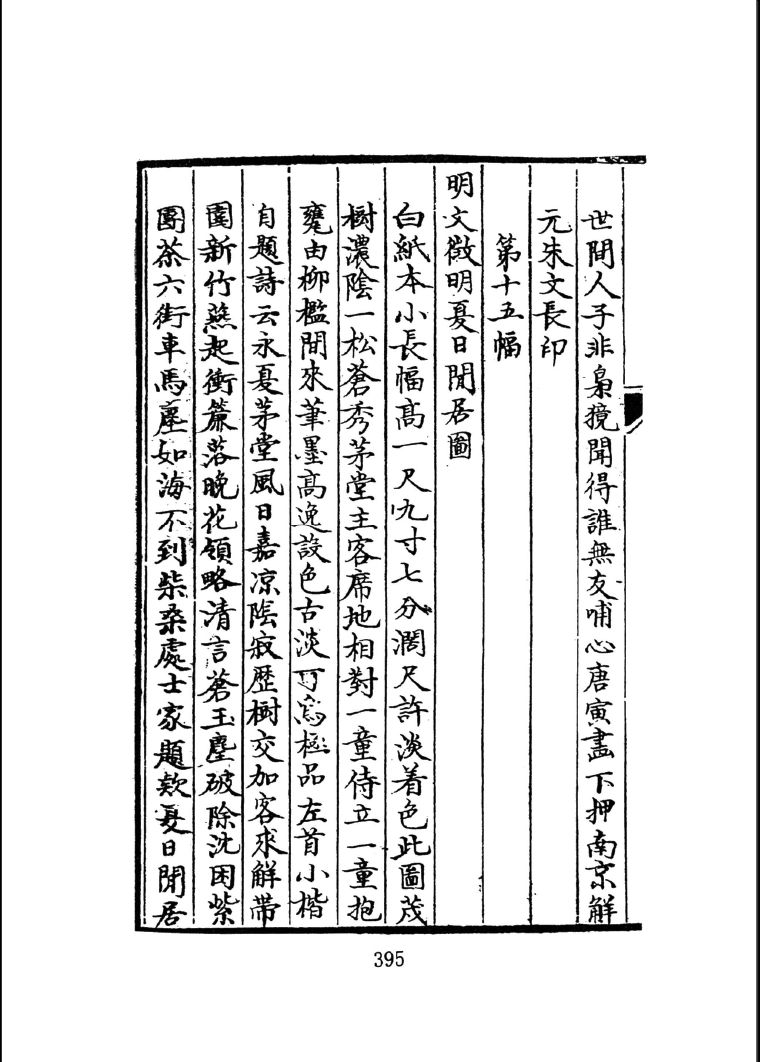 世間人子非梟獍聞得誰無友哺心唐寅畫下押南京解
元朱文長印
第十五幅
明文徵明夏日閒居圖
白紙本小長幅高一尺九寸七分濶尺許淡着色此圖茂
樹濃陰一松蒼秀茅堂主客席地相對一童侍立一童抱
甕由柳檻間來筆墨高逸設色古淡可為極品左首小楷
自題詩云永夏茅堂風日嘉凉陰寂歷樹交加客來解帶
圍新竹燕起衝簾落晚花領略清言蒼玉麈破除沈困紫
團茶六街車馬塵如海不到柴桑處士家題款夏日閒居
395